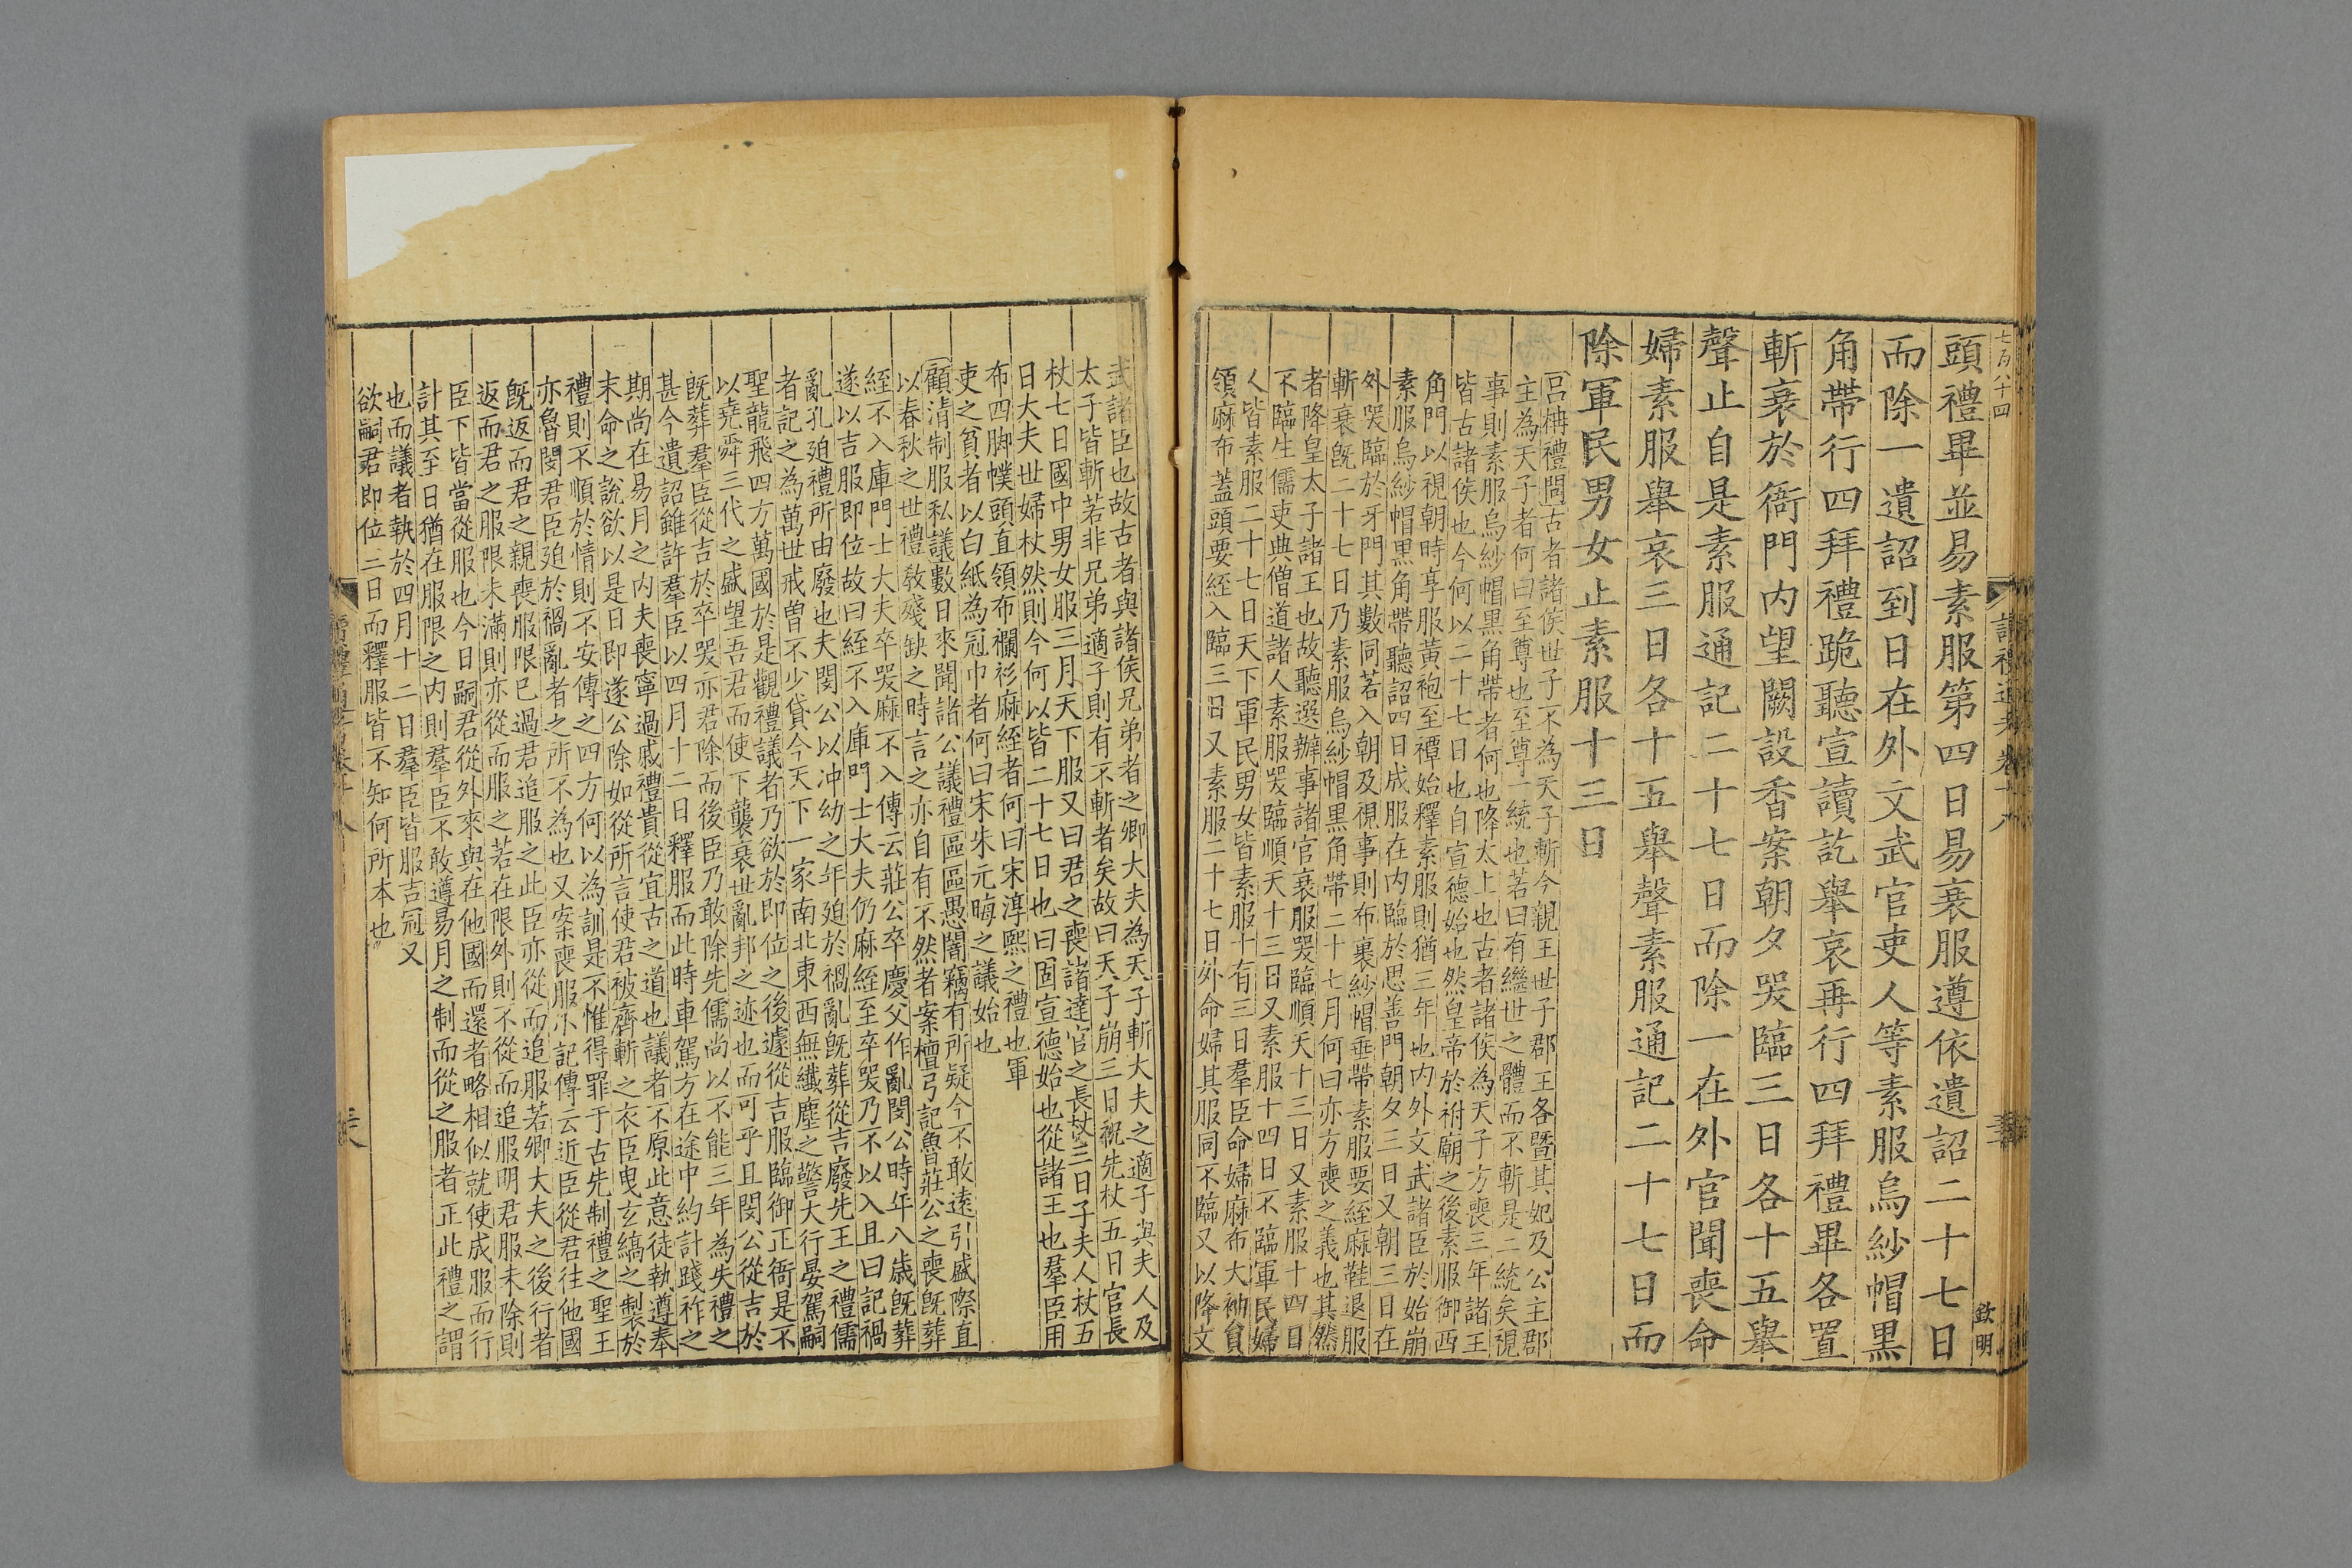 七百八十四
頭禮畢並易素服第四日易衰服遵依遺詔二十七日
而除一遺詔到日在外文武官吏人等素服烏紗帽黑
角帶行四拜禮跪聽宣讀訖舉哀再行四拜禮畢各置
斬衰於衙門內望闕設香案朝夕哭臨三日各十五舉
聲止自是素服通記二十七日而除一在外官聞喪命
婦素服舉哀三日各十五舉聲素服通記二十七日而
除軍民男女止素服十三日
呂柟禮問古者諸侯世子不為天子斬今親王世子郡王各暨其妃及公主郡
主為天子者何曰至尊也至尊一統也若曰有繼世之體而不斬是二統矣視
事則素服烏紗帽黑角帶者何也降太上也古者諸侯為天子方喪三年諸王
皆古諸侯也今何以二十七日也自宣德始也然皇帝於祔廟之後素服御西
角門以視朝時享服黃袍至禫始釋素服則猶三年也內外文武諸臣於始崩
素服烏紗帽黑角帶聽詔四日成服在內臨於思善門朝夕三日又朝三日在
外哭臨於牙門其數同若入朝及視事則布裹紗帽垂帶素服要絰麻鞋退服
斬衰既二十七日乃素服烏紗帽黑角帶二十七月何曰亦方喪之義也其然
者降皇太子諸王也故聽選辦事諸官衰服哭臨順天十三日又素服十四日
不臨生儒吏典僧道諸人素服哭臨順天十三日又素服十四日不臨軍民婦
人皆素服二十七日天下軍民男女皆素服十有三日羣臣命婦麻布大袖員
領麻布蓋頭要絰入臨三日又素服二十七日外命婦其服同不臨又以降文
欽明
武諸臣也故古者與諸侯兄弟者之卿大夫為天子斬大夫之適子與夫人及
太子皆斬若非兄弟適子則有不斬者矣故曰天子崩三日祝先杖五日官長
杖七日國中男女服三月天下服又曰君之喪諸達官之長杖三日子夫人杖五
日大夫世婦杖然則今何以皆二十七日也曰固宣德始也從諸王也羣臣用
布四脚幞頭直領布襴衫麻絰者何曰宋淳熙之禮也軍
吏之貧者以白紙為冠巾者何曰宋朱元晦之議始也
顧清制服私議數日來聞諸公議禮區區愚闇竊有所疑今不敢遠引盛際直
以春秋之世禮教殘缺之時言之亦自有不然者案檀弓記魯莊公之喪既葬
絰不入庫門士大夫卒哭麻不入傳云莊公卒慶父作亂閔公時年八歲既葬
遂以吉服即位故曰絰不入庫門士大夫仍麻絰至卒哭乃不以入且曰記禍
亂孔廹禮所由廢也夫閔公以冲幼之年廹於禍亂既葬從吉廢先王之禮儒
者記之為萬世戒曾不少貸今天下一家南北東西無纖塵之警大行晏駕嗣
聖龍飛四方萬國於是觀禮議者乃欲於即位之後遽從吉服臨御正衙是不
以堯舜三代之盛望吾君而使下襲衰世亂邦之迹也而可乎且閔公從吉於
既葬羣臣從吉於卒哭亦君除而後臣乃敢除先儒尚以不能三年為失禮之
甚今遺詔雖許羣臣以四月十二日釋服而此時車駕方在途中約計踐祚之
期尚在易月之內夫喪寧過戚禮貴從宜古之道也議者不原此意徒執遵奉
末命之說欲以是日即遂公除如從所言使君被齊斬之衣臣曳玄縞之製於
禮則不順於情則不安傳之四方何以為訓是不惟得罪于古先制禮之聖王
亦魯閔君臣廹於禍亂者之所不為也又案喪服小記傳云近臣從君往他國
既返而君之親喪服限已過君追服之此臣亦從而追服若卿大夫之後行者
返而君之服限未滿則亦從而服之若在限外則不從而追服明君服未除則
臣下皆當從服也今日嗣君從外來與在他國而還者略相似就使成服而行
計其至日猶在服限之內則羣臣不敢遵易月之制而從之服者正此禮之謂
也而議者執於四月十二日羣臣皆服吉冠又
欲嗣君即位二日而釋服皆不知何所本也